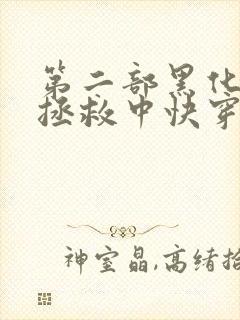 第二部黑化
拯救中快穿
神室晶,高绪拾